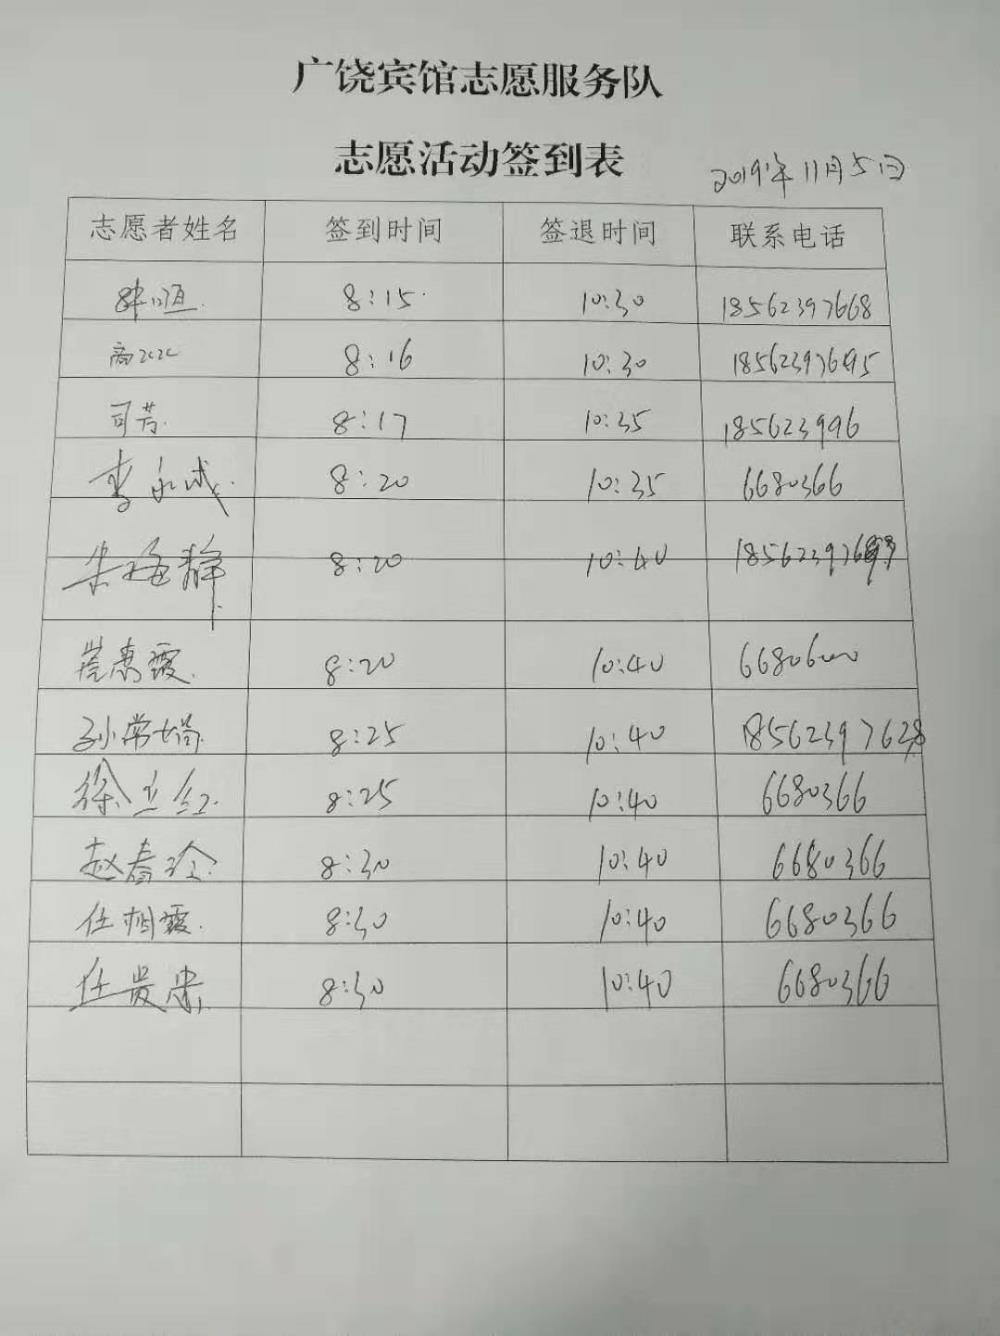 广饶宾馆志愿服务队
志愿活动签到表
2019年11月5日
志愿者姓名 签到时间 签退时间 联系电话
8:15 10:30 18562397668
8:16 10:30 18562397695
司芳 8:17 10:35 185623996
李永成 8:20 10:35 6680366
朱海静 8:20 10:40
崔惠霞 8:20 10:40 6680600
孙常娟 8:25 10:40 18562397628
徐立红 8:25 10:40 6680366
赵春玲 8:30 10:40 6680366
任相霞 8:30 10:40 6680366
任贵忠 8:30 10:40 6680366